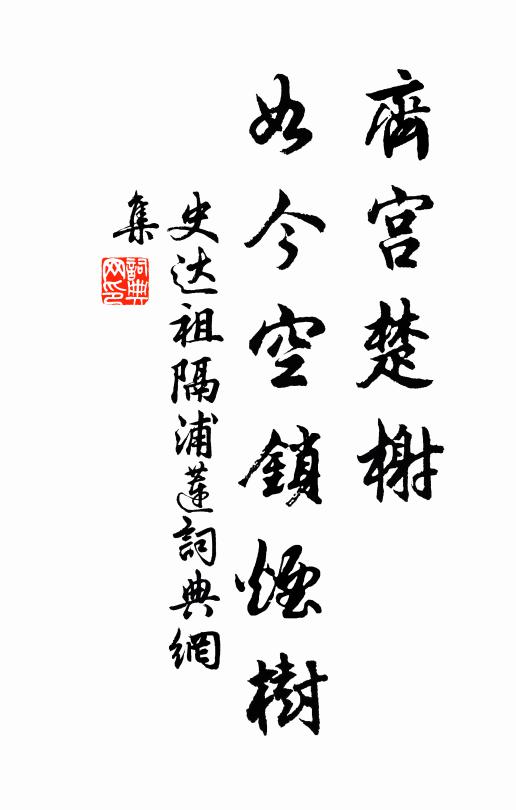 齊宮楚榭
如今空鎖煙樹
史达祖隔浦蓮詞典網
集
詞典网印